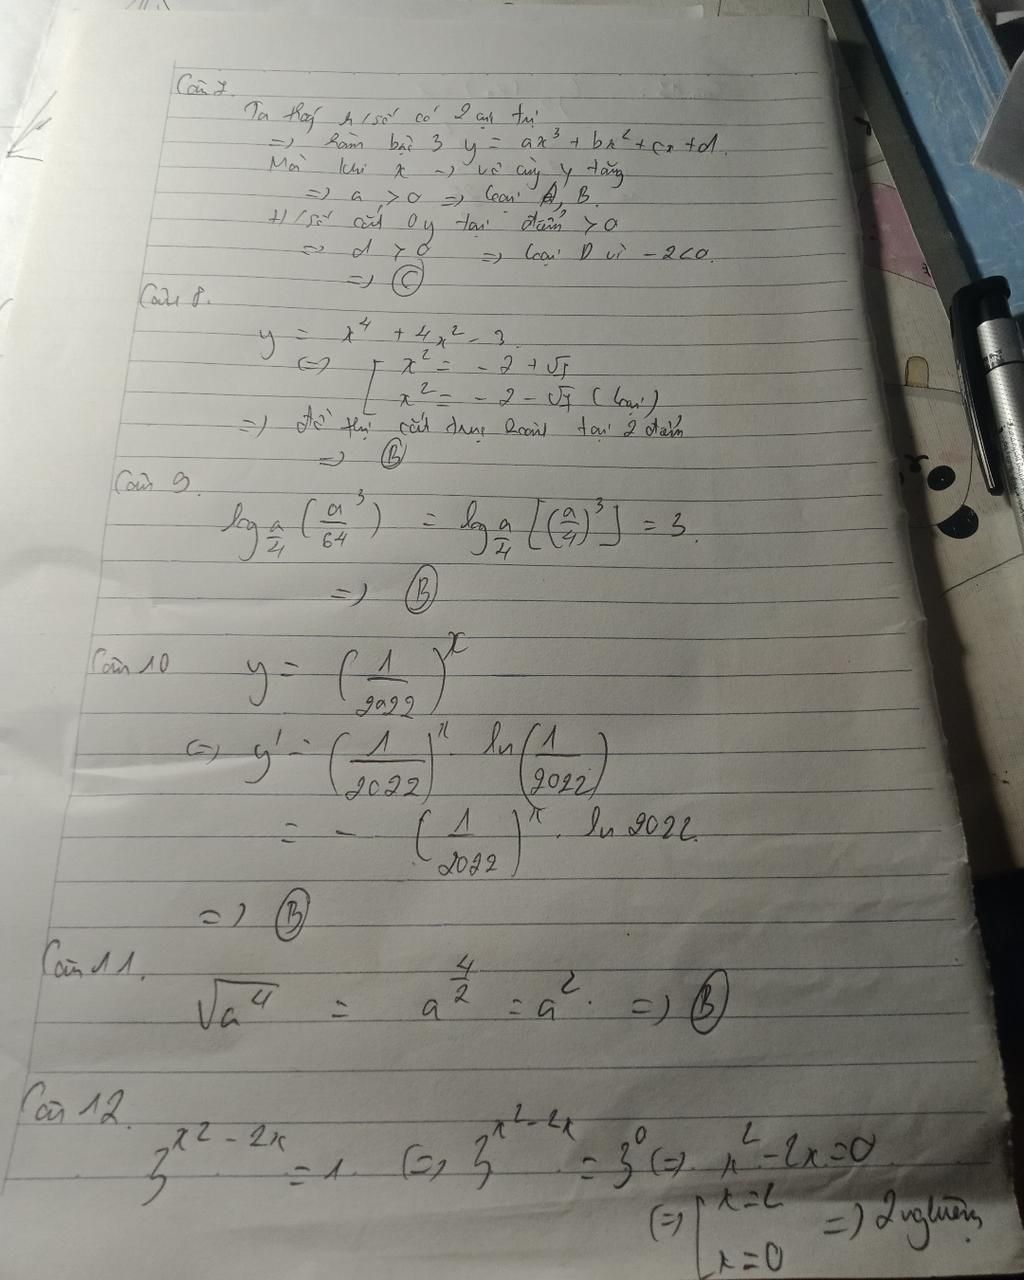 Câu 7.
Ta thấy h/số có 2 cực trị
=> hàm bậc 3 y = ax³ + bx² + cx + d.
Mà khi x -> vô cùng y tăng
=> a > 0 => loại A, B.
H/số cắt Oy tại điểm > 0
=> d > 0 => loại D vì -2<0.
=> C
Câu 8.
y = x⁴ + 4x² - 3.
<=> [ x² = -2 + √7
x² = -2 - √7 (loại)
=> đồ thị cắt trục hoành tại 2 điểm
=> B
Câu 9.
log_{a/4} (a³/64) = log_{a/4} [(a/4)³] = 3.
=> B
Câu 10 y = (1/2022)^x
<=> y' = (1/2022)^x . ln(1/2022)
= - (1/2022)^x . ln 2022.
=> B
Câu 11.
√a⁴ = a^{4/2} = a². => B
Câu 12.
3^{x²-2x} = 1 <=> 3^{x²-2x} = 3⁰ <=> x² - 2x = 0
<=> [ x = 2
x = 0 => 2 nghiệm